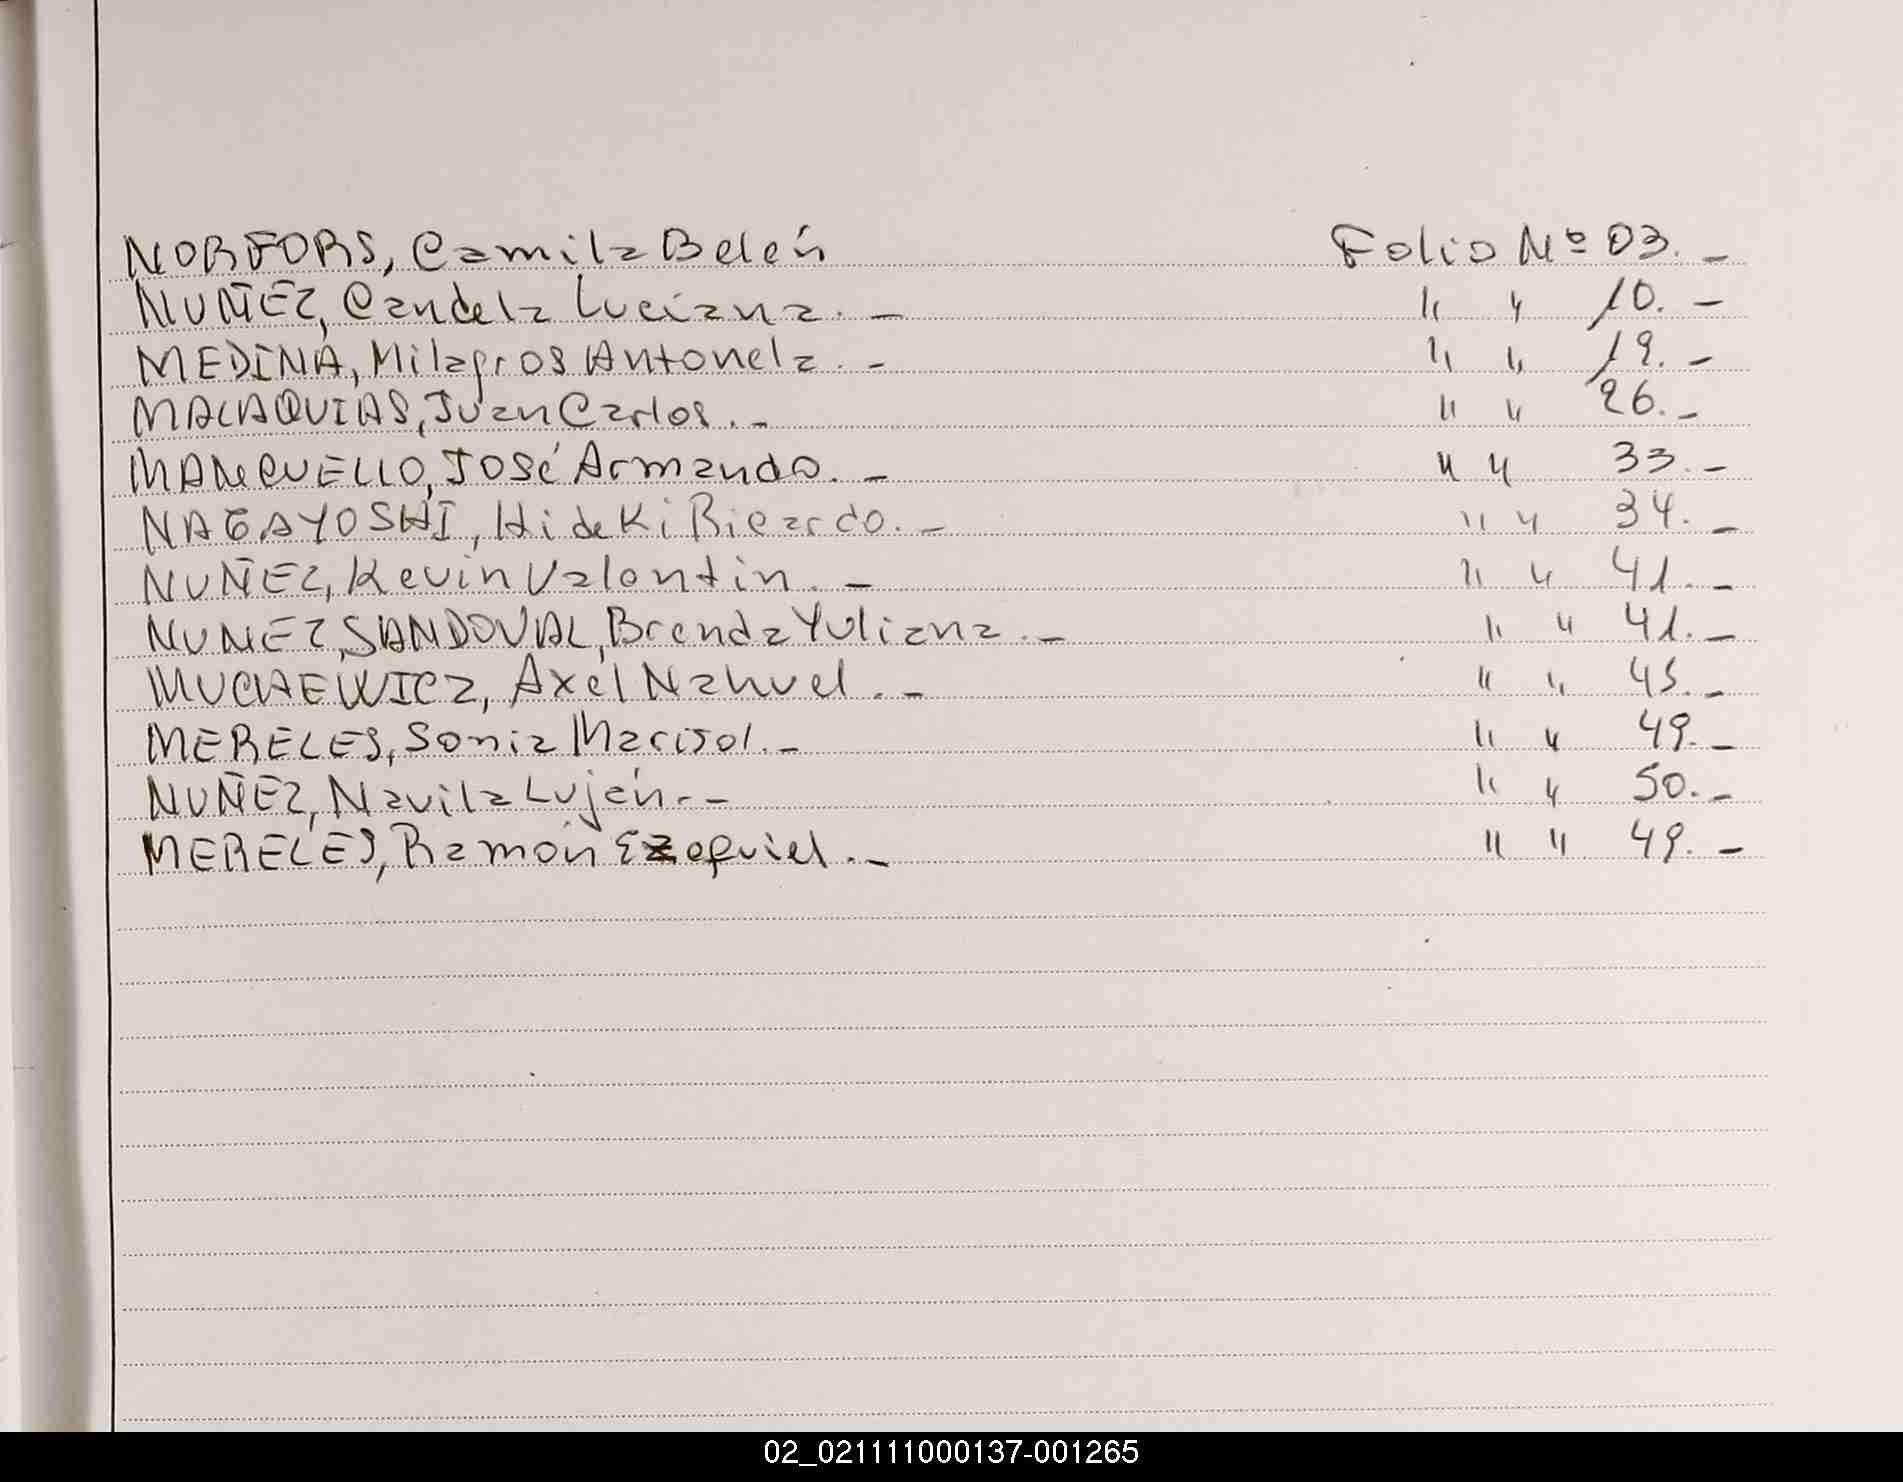 NORFORS, Camila Belén Folio Nº 03.-
NUÑEZ, Candela Luciana.- " " 10.-
MEDINA, Milagros Antonela.- " " 19.-
MALAQUIAS, Juan Carlos.- " " 26.-
MANCUELLO, José Armando.- " " 33.-
NAGAYOSHI, Hideki Ricardo.- " " 34.-
NUÑEZ, Kevin Valentin.- " " 41.-
NUNEZ, SANDOVAL, Brenda Yuliana.- " " 41.-
MUCHEWICZ, Axel Nahuel.- " " 45.-
MERELES, Sonia Marisol.- " " 49.-
NUÑEZ, Navila Luján.- " " 50.-
MERELES, Ramón Ezequiel.- " " 49.-
02_021111000137-001265